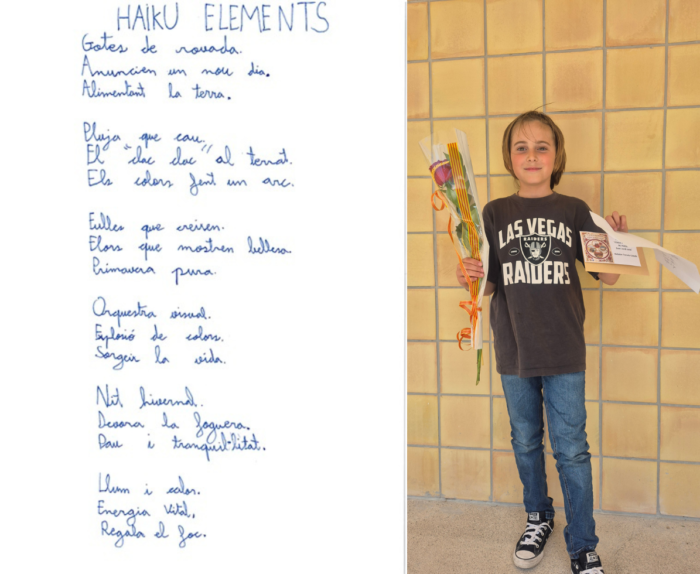 HAIKU ELEMENTS
Gotes de rovada.
Anuncien un nou dia.
Alimentant la terra.
Pluja que cau,
El "cloc cloc" al terrat.
Els colors fent un arc.
Fulles que creixen.
Flors que mostren bellesa.
Primavera pura.
Orquestra visual.
Explosió de colors.
Sorgeix la vida.
Nit hivernal.
Devora la foguera.
Pau i tranquil·litat.
Llum i calor.
Energia Vital,
Regala el foc.
LAS VEGAS
RAIDERS
RAIDERS